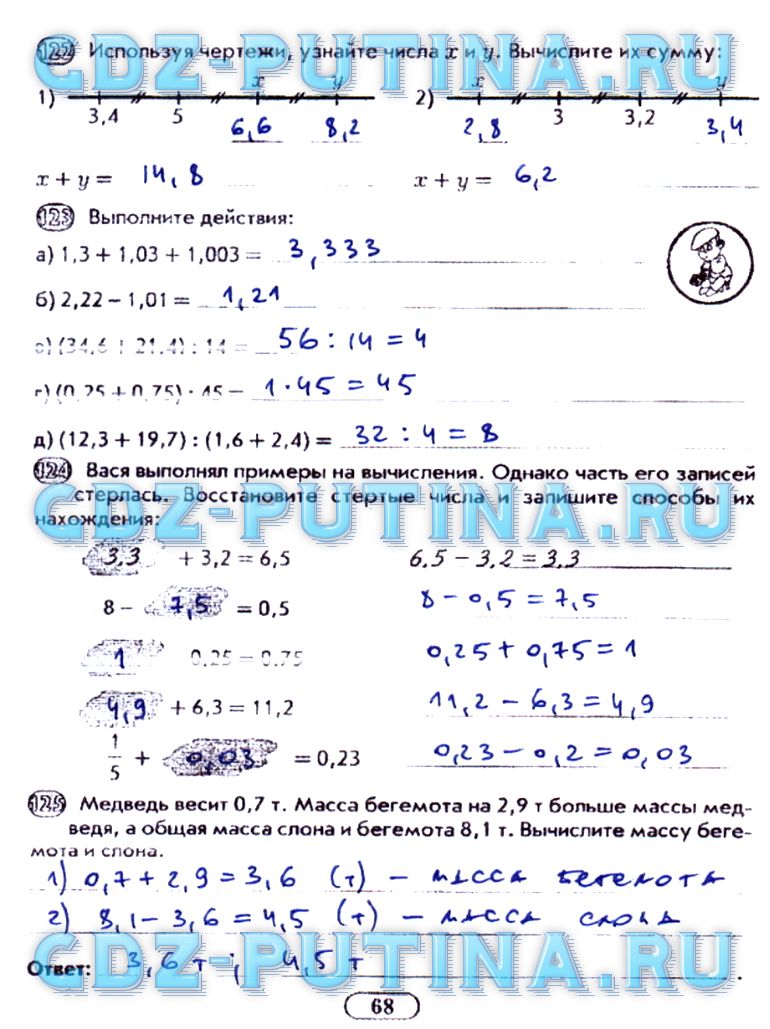 122 Используя чертежи, узнайте числа x и y. Вычислите их сумму:
1) 3,4 5 x 6,6 y 8,2 2) x 2,8 3 3,2 y 3,4
x + y = 14,8 x + y = 6,2
123 Выполните действия:
а) 1,3 + 1,03 + 1,003 = 3,333
б) 2,22 – 1,01 = 1,21
в) (34,6 + 21,4) : 14 = 56 : 14 = 4
г) (0,25 + 0,75) · 45 = 1 · 45 = 45
д) (12,3 + 19,7) : (1,6 + 2,4) = 32 : 4 = 8
124 Вася выполнял примеры на вычисления. Однако часть его записей
стерлась. Восстановите стертые числа и запишите способы их
нахождения:
3,3 + 3,2 = 6,5 6,5 – 3,2 = 3,3
8 – 7,5 = 0,5 8 – 0,5 = 7,5
1 0,25 = 0,75 0,25 + 0,75 = 1
4,9 + 6,3 = 11,2 11,2 – 6,3 = 4,9
1/5 + 0,03 = 0,23 0,23 – 0,2 = 0,03
125 Медведь весит 0,7 т. Масса бегемота на 2,9 т больше массы мед-
ведя, а общая масса слона и бегемота 8,1 т. Вычислите массу беге-
мота и слона.
1) 0,7 + 2,9 = 3,6 (т) – масса бегемота
2) 8,1 – 3,6 = 4,5 (т) – масса слона
Ответ: 3,6 т; 4,5 т.
68
GDZ-PUTINA.RU
GDZ-PUTINA.RU
GDZ-PUTINA.RU